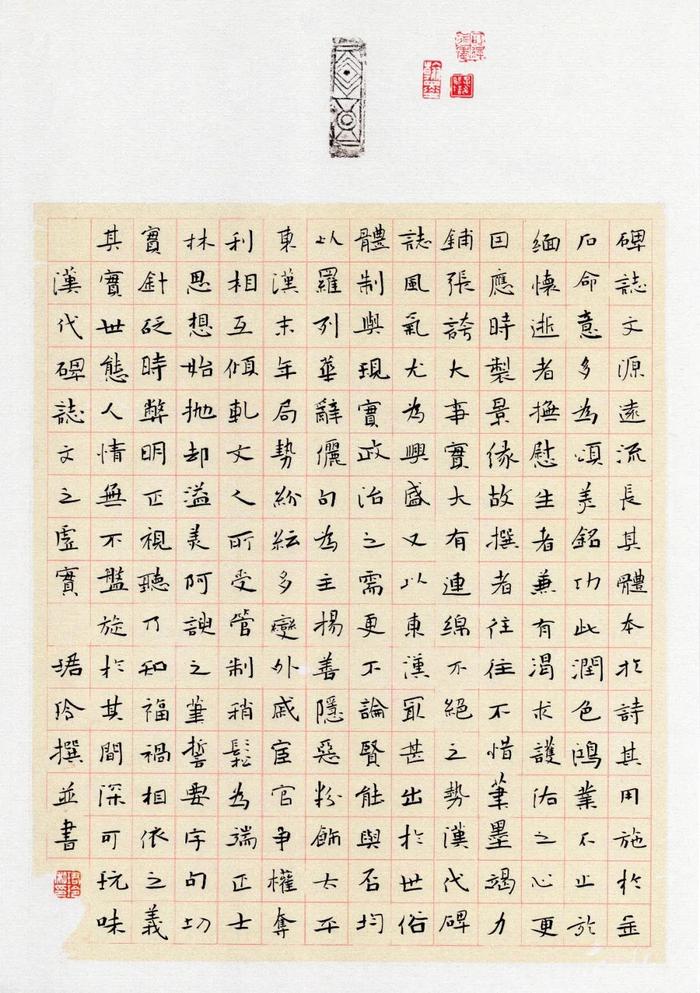 碑誌文源遠流長其體本於詩其用施於金
石命意多為頌美銘功此潤色鴻業不止於
緬懷逝者撫慰生者兼有渴求護佑之心更
因應時製景緣故撰者往往不惜筆墨竭力
鋪張誇大事實大有連綿不絕之勢漢代碑
誌風氣尤為興盛又以東漢最甚出於世俗
體制與現實政治之需更不論賢能與否均
以羅列華辭儷句為主揚善隱惡粉飾太平
東漢末年局勢紛紜多變外戚宦官爭權奪
利相互傾軋文人所受管制稍鬆為端正士
林思想始拋卻溢美阿諛之筆誓要字句切
實針砭時弊明正視聽乃知福禍相依之義
其實世態人情無不盤旋於其間深可玩味
漢代碑誌文之虛實 珺玲撰並書